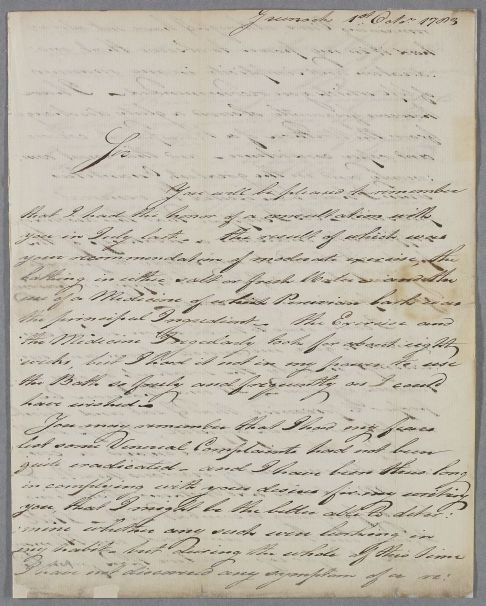 Greenock 1st Octr. 1783
Sir
You will be pleased to remember
that I had the honor of a consultation with
you in July last. The result of which was
your recommendation of moderate exercise, the
bathing in either salt or fresh Water and the
use of a Medicine of which Peruvian bark was
the principal Ingredient. The Exercise and
the Medicine I regularly took for about eight
weeks but I had it not in my power to use
the Bath so freely and frequently as I could
have wished.
You may remember that I had my fears
lest some Venereal Complaints had not been
quite eradicated. and I have been thus long
in complying with your desire for me writing
you that I might be the better able to deter:
:mine whether any such were lurking in
my habit. but during the whole of this time
I have not discovered any symptom of a re: